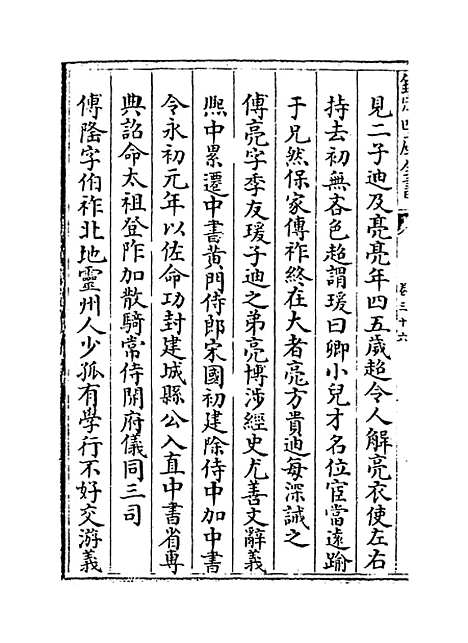 欽定四庫全書
卷三十六
見二子迪及亮亮年四五歲超令人解亮衣使左右
持去初無吝色超謂瑗曰卿小兒才名位宦當遠踰
于兄然保家傳祚終在大者亮方貴迪每深誡之
傅亮字季友瑗子迪之弟亮博涉經史尤善文辭義
熙中累遷中書黃門侍郎宋國初建除侍中加中書
令永初元年以佐命功封建城縣公入直中書省專
典詔命太祖登阼加散騎常侍開府儀同三司
傅隆字伯祚北地靈州人少孤有學行不好交游義